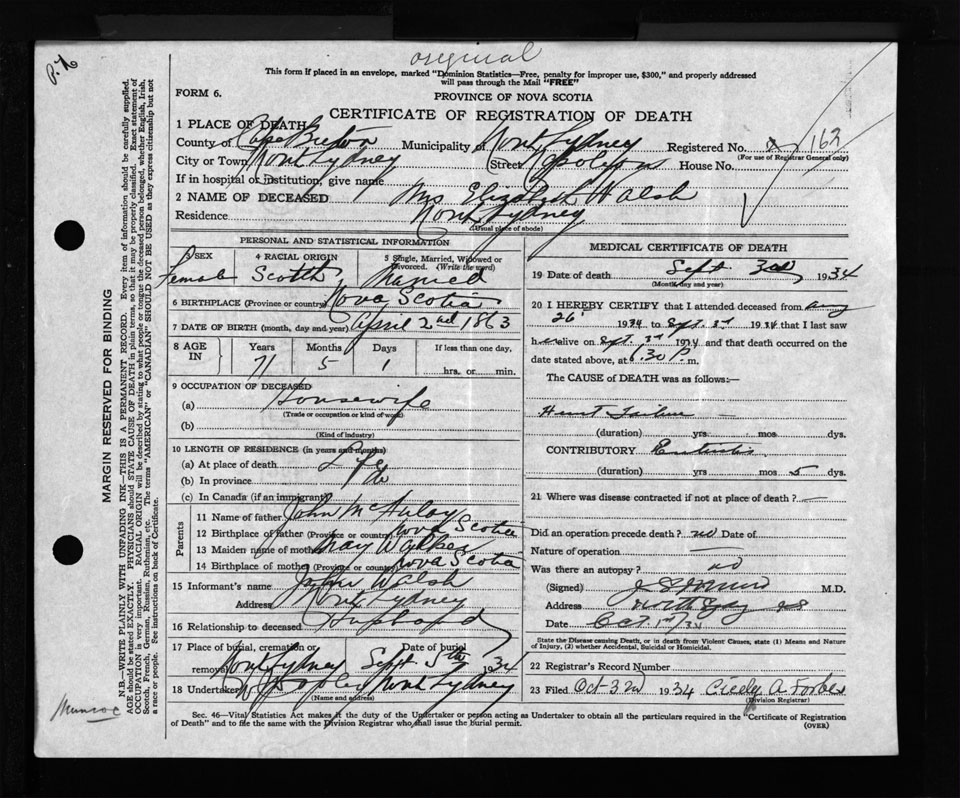 original
P.N.
This form if placed in an envelope, marked "Dominion Statistics—Free, penalty for improper use, $300," and properly addressed
will pass through the Mail "FREE"
FORM 6.
PROVINCE OF NOVA SCOTIA
CERTIFICATE OF REGISTRATION OF DEATH
1 PLACE OF DEATH
County of Cape Breton Municipality of North Sydney Registered No. 163
(For use of Registrar General only)
City or Town North Sydney (Street House No.
If in hospital or institution, give name
2 NAME OF DECEASED Mrs Elizabeth Walsh
Residence North Sydney
(Usual place of abode)
PERSONAL AND STATISTICAL INFORMATION
3 SEX Female
4 RACIAL ORIGIN Scotch
5 Single, Married, Widowed or Divorced. (Write the word) Married
6 BIRTHPLACE (Province or country) Nova Scotia
7 DATE OF BIRTH (month, day and year) April 2nd 1863
8 AGE IN Years Months Days If less than one day,
71 5 1 hrs. or min.
9 OCCUPATION OF DECEASED
(a) Housewife
(Trade or occupation or kind of work)
(b)
(Kind of industry)
10 LENGTH OF RESIDENCE (in years and months)
(a) At place of death Life
(b) In province
(c) In Canada (if an immigrant)
Parents
11 Name of father John McAulay
12 Birthplace of father (Province or country) Nova Scotia
13 Maiden name of mother May Walker
14 Birthplace of mother (Province or country) Nova Scotia
15 Informant's name John Walsh
Address North Sydney
16 Relationship to deceased Husband
17 Place of burial, cremation or removal North Sydney Date of burial Sept 5th 1934
18 Undertaker North Sydney
(Name and address)
MEDICAL CERTIFICATE OF DEATH
19 Date of death Sept 3rd, 1934
(Month, day and year)
20 I HEREBY CERTIFY that I attended deceased from Aug
26 1934 to Sept. 3rd 1934 that I last saw
her alive on Sept. 3rd 1934 and that death occurred on the
date stated above, at 6.30 P m.
The CAUSE of DEATH was as follows:—
Heart Failure
(duration) yrs. mos dys.
CONTRIBUTORY Enteritis
(duration) yrs mos 5 dys.
21 Where was disease contracted if not at place of death? —
Did an operation precede death? no Date of
Nature of operation —
Was there an autopsy? no
(Signed) M.D.
Address North Sydney NS
Date Oct 1st/34
State the Disease causing Death, or in death from Violent Causes, state (1) Means and Nature
of Injury, (2) whether Accidental, Suicidal or Homicidal.
22 Registrar's Record Number
23 Filed Oct 3rd 1934 Cicely A. Forbes
(Division Registrar)
Sec. 46—Vital Statistics Act makes it the duty of the Undertaker or person acting as Undertaker to obtain all the particulars required in the "Certificate of Registration
of Death" and to file the same with the Division Registrar who shall issue the burial permit. (OVER)
MARGIN RESERVED FOR BINDING
N.B.—WRITE PLAINLY WITH UNFADING INK—THIS IS A PERMANENT RECORD. Every item of information should be carefully supplied.
AGE should be stated EXACTLY. PHYSICIANS should STATE CAUSE OF DEATH in plain terms, so that it may be properly classified. Exact statement of
OCCUPATION is very important. RACIAL ORIGIN will be described by stating to what people or tongue the deceased person belonged, whether English, Irish,
Scotch, French, German, Russian, Ruthenian, etc. The terms "AMERICAN" or "CANADIAN" SHOULD NOT BE USED as they express citizenship but not
a race or people. See instructions on back of Certificate.
Munroe